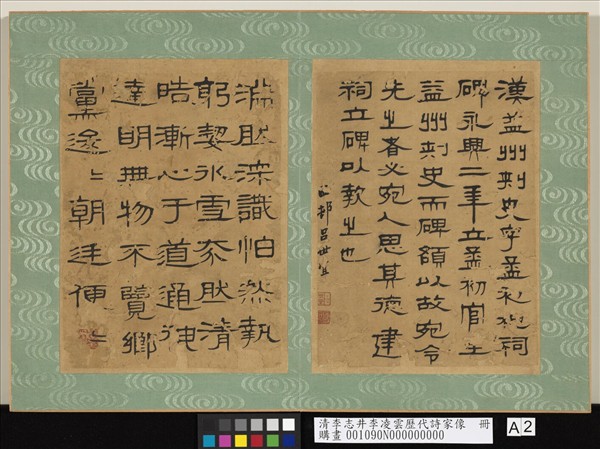 漢益州刺史字孟初神祠
碑永興二年立孟初官至
益州刺史而碑額以故宛令
先之者必宛人思其德建
祠立碑以教之也
西邨呂世宜
淵然深識怕然執
躬絜冰雪耽清
晧漸心于道
達明無物不覽鄉
黨逡〻朝廷便〻
清李志井李凌雲歷代詩家像 冊
購畫 001090N000000000
A 2